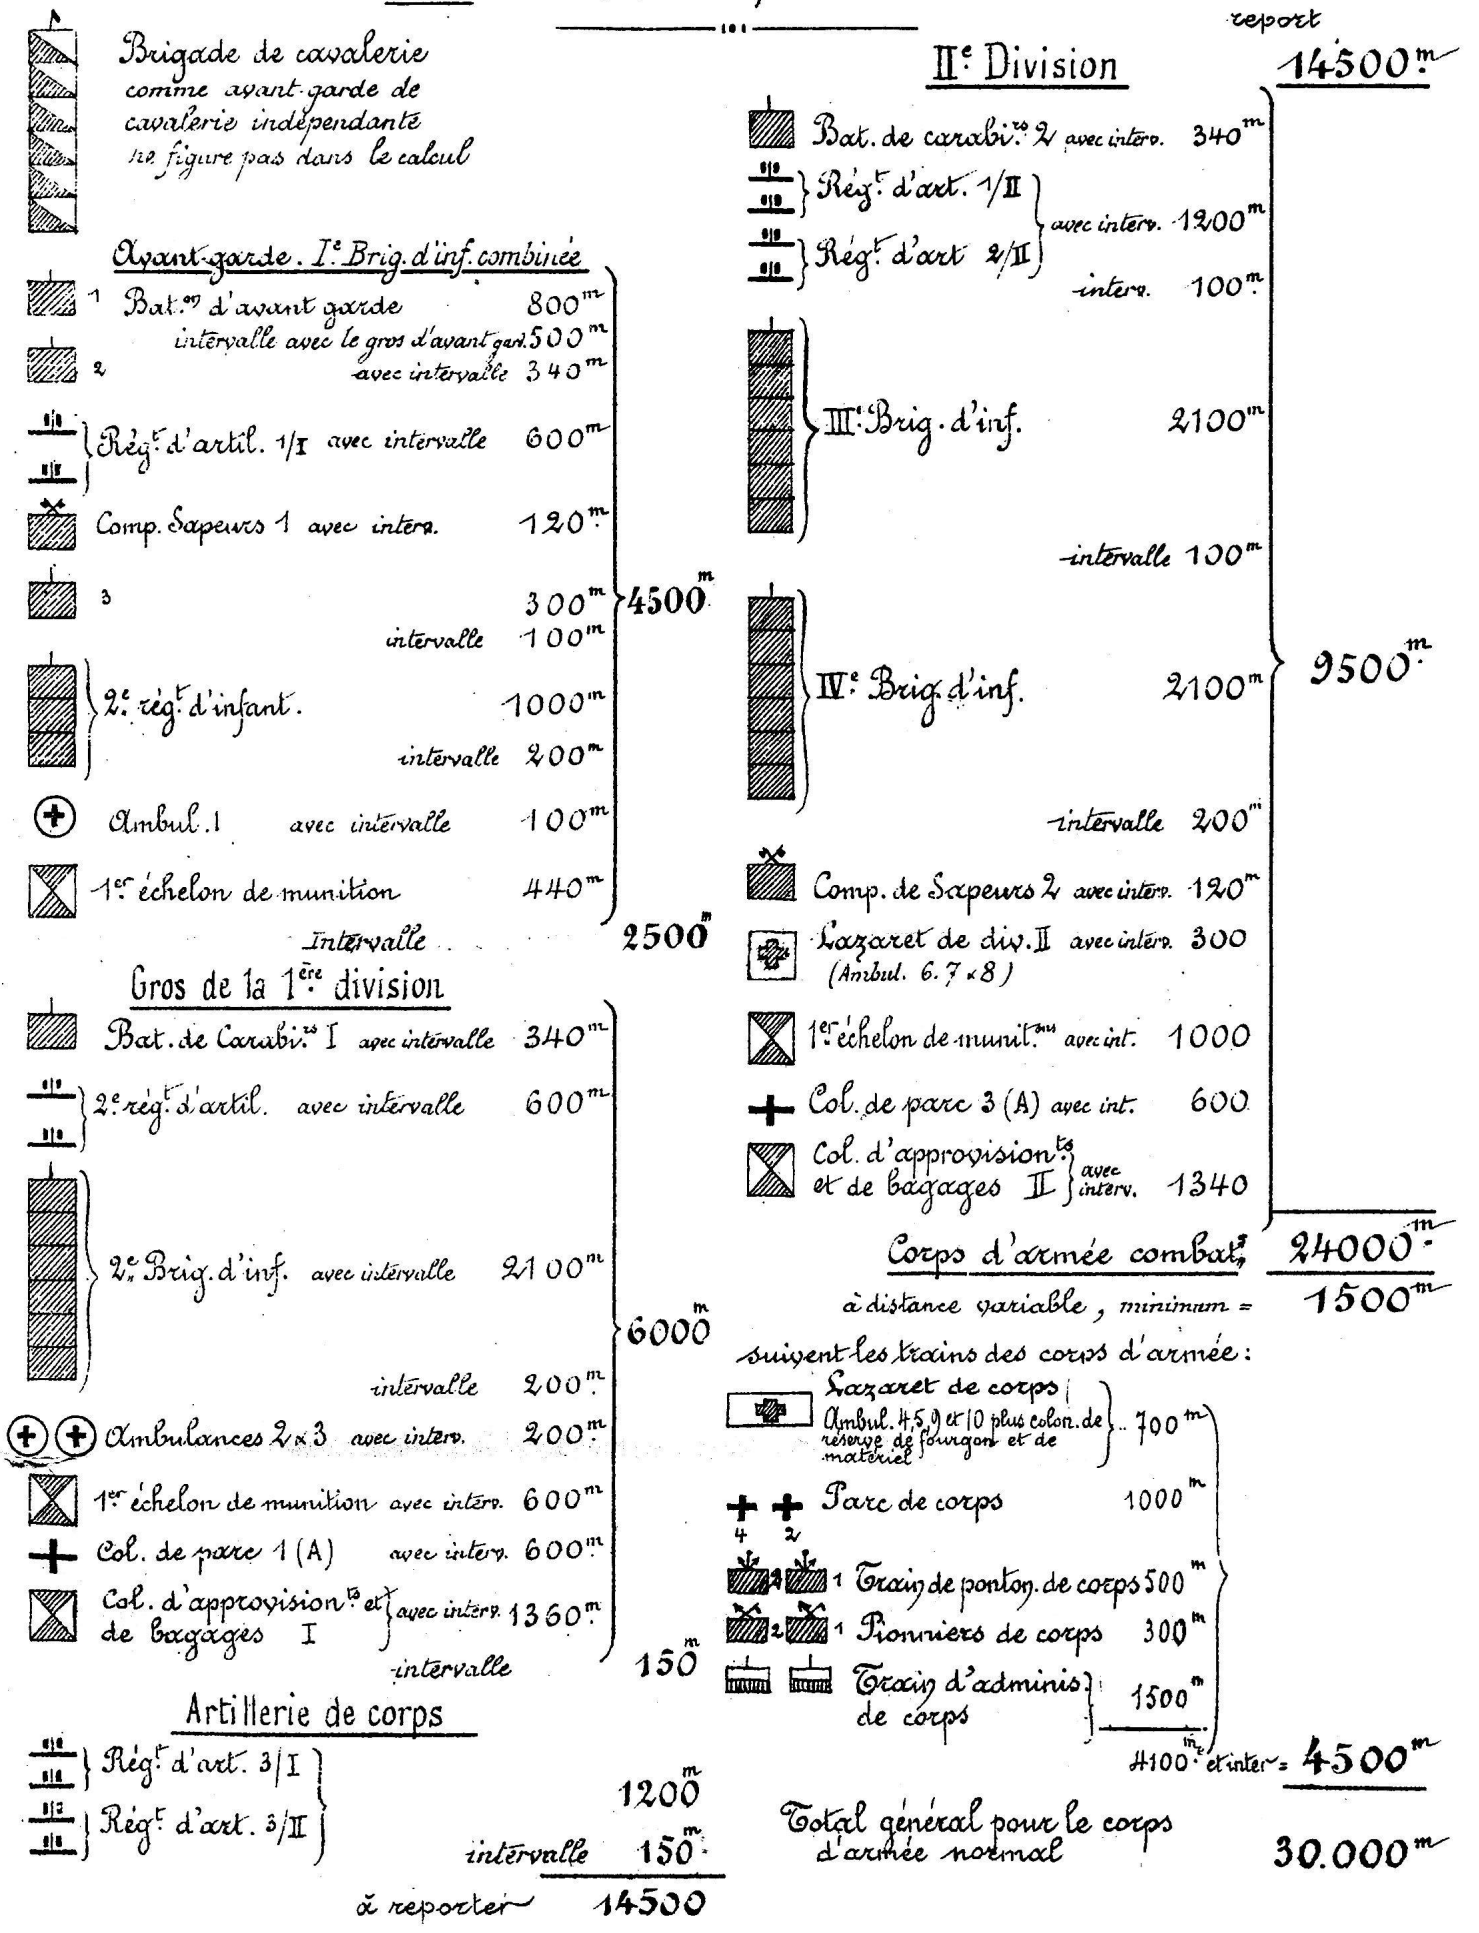 Brigade de cavalerie
comme avant-garde de
cavalerie indépendante
ne figure pas dans le calcul
Avant-garde. Iᵉ Brig. d'inf. combinée
1 Bat.ᵒⁿ d'avant garde 800ᵐ
intervalle avec le gros d'avant gard. 500ᵐ
2 avec intervalle 340ᵐ
Rég.ᵗ d'artil. 1/I avec intervalle 600ᵐ
Comp. Sapeurs 1 avec interv. 120ᵐ
3 300ᵐ
4500ᵐ
intervalle 100ᵐ
2ᵉ rég.ᵗ d'infant. 1000ᵐ
intervalle 200ᵐ
Ambul. 1 avec intervalle 100ᵐ
1ᵉʳ échelon de munition 440ᵐ
Intervalle 2500ᵐ
Gros de la 1ᵉ̀ʳᵉ division
Bat. de Carabi.ʳˢ I avec intervalle 340ᵐ
2ᵉ rég.ᵗ d'artil. avec intervalle 600ᵐ
2ᵉ Brig. d'inf. avec intervalle 2100ᵐ
6000ᵐ
intervalle 200ᵐ
Ambulances 2 x 3 avec interv. 200ᵐ
1ᵉʳ échelon de munition avec interv. 600ᵐ
Col. de parc 1 (A) avec interv. 600ᵐ
Col. d'approvision.ᵗˢ et
de bagages I avec interv. 1360ᵐ
intervalle 150ᵐ
Artillerie de corps
Rég.ᵗ d'art. 3/I
1200ᵐ
Rég.ᵗ d'art. 3/II
intervalle 150ᵐ
à reporter 14500
report
IIᵉ Division 14500ᵐ
Bat. de carabi.ʳˢ 2 avec interv. 340ᵐ
Rég.ᵗ d'art. 1/II
avec interv. 1200ᵐ
Rég.ᵗ d'art 2/II
interv. 100ᵐ
IIIᵉ Brig. d'inf. 2100ᵐ
intervalle 100ᵐ
9500ᵐ
IVᵉ Brig. d'inf. 2100ᵐ
intervalle 200ᵐ
Comp. de Sapeurs 2 avec interv. 120ᵐ
Lazaret de div. II avec interv. 300
(Ambul. 6. 7 x 8)
1ᵉʳ échelon de munit.ᵒⁿˢ avec int. 1000
Col. de parc 3 (A) avec int. 600
Col. d'approvision.ᵗˢ
et de bagages II avec interv. 1340
Corps d'armée combat.ᵗ 24000ᵐ
à distance variable, minimum = 1500ᵐ
suivent les trains des corps d'armée:
Lazaret de corps
Ambul. 4, 5, 9 et 10 plus colon. de
réserve de fourgon et de
matériel .. 700ᵐ
Parc de corps 1000ᵐ
4 2
2 1 Train de ponton. de corps 500ᵐ
2 1 Pionniers de corps 300ᵐ
Train d'adminis.
de corps 1500ᵐ
4100ᵐ et inter = 4500ᵐ
Total général pour le corps
d'armée normal 30.000ᵐ